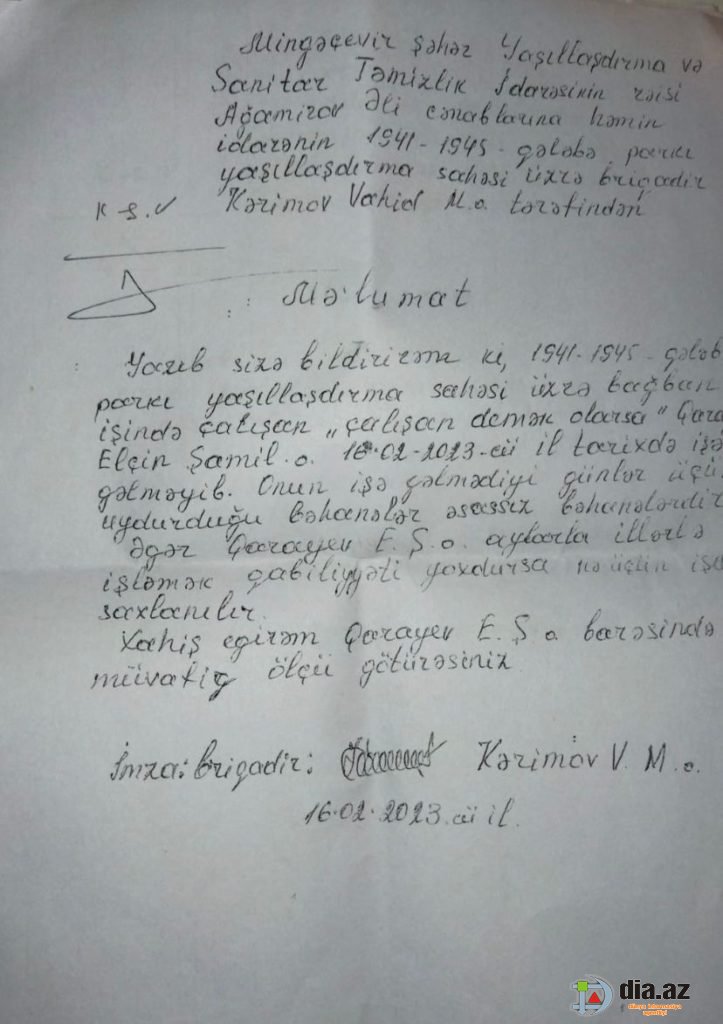 Mingəçevir şəhər Yaşıllaşdırma və
Sanitar Təmizlik İdarəsinin rəisi
Ağamirov Əli cənablarına həmin
idarənin 1941-1945-gələbə parkı
yaşıllaşdırma sahəsi üzrə brigadir
K.Ş.V Kərimov Vahid M.o. tərəfindən
Mə'lumat
Yazıb sizə bildirirəm ki, 1941-1945-gələb
parkı yaşıllaşdırma sahəsi üzrə bağban
işində çalışan „çalışan demək olarsa" Qara
Elçin Şamil.o. 16.02-2023-cü il tarixdə işə
gəlməyib. Onun işə gəlmədiyi günlər üçü
uydurduğu bəhanələr əsassız bəhanələrdir
Əgər Qarayev E.Ş.o. aylarla illərlə
işləmək qabiliyyəti yoxdursa nə üçün işə
saxlanılır.
Xahiş egirəm Qarayev E.Ş.o. barəsində
müvafiq ölçü götürəsiniz
İmza: brigadir: Kərimov V. M.o.
16.02.2023.cü il.
dia.az
dünya informasiya
agentliyi